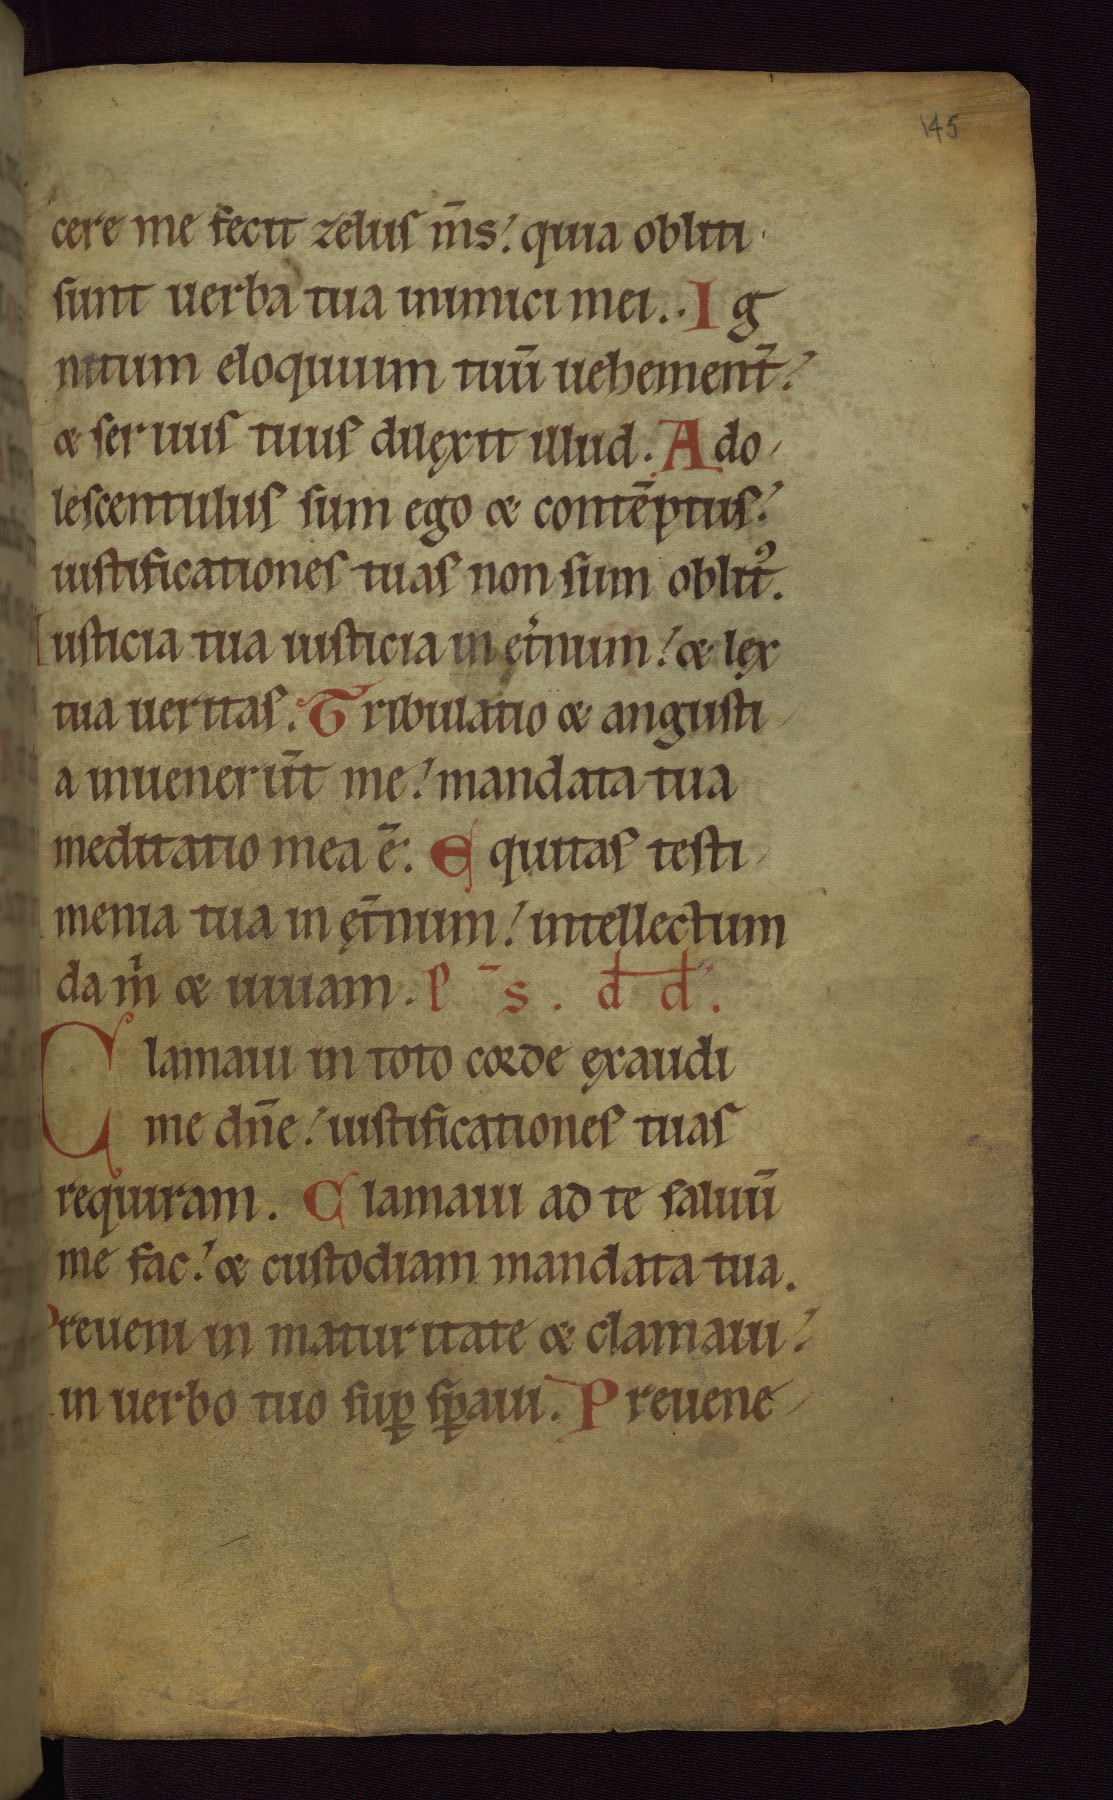 145
cere me fecit zelus m̄s: quia obliti
sunt uerba tua inimici mei. Ig
nitum eloquium tuū uehement̄:
& seruus tuus dilęxit illud. Ado
lescentulus sum ego & contēptus:
iustificationes tuas non sum oblitꝰ.
Iusticia tua iusticia in et̄num: & lęx
tua ueritas. Tribulatio & angusti
a inuenerūt me: mandata tua
meditatio mea ē. Equitas testi
menia tua in ęt̄num: intellectum
da m̄ & uiuam. p ̄s. d d.
Clamaui in toto corde ęxaudi
me dn̄e: iustificationes tuas
requiram. Clamaui ad te saluū
me fac: & custodiam mandata tua.
Preueni in maturitate & clamaui:
in uerbo tuo suꝑ sꝑaui. Preuene